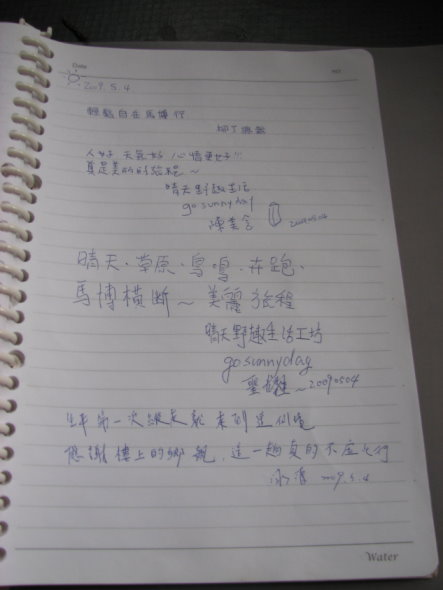 Date
NO.
2009.5.4
輕鬆自在馬博行
柳丁
人好 天氣好 心情更好!!
真是美的的旅程~
晴天野趣生活
go sunny day
陳
20090504
晴天、草原、鳥鳴、奔跑、
馬博橫斷~美麗旅程
晴天野趣生活工坊
go sunny day
20090504
生平第一次縱走就來到這個
感謝樓上的鄉親，這一趟真的不虛此行
2009.5.4
Water